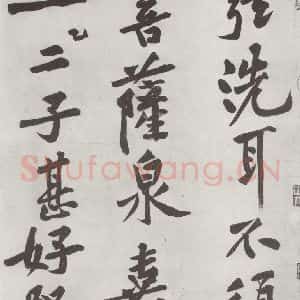 洗耳不須
菩薩泉嘉
二子甚好
Shufawang.CN